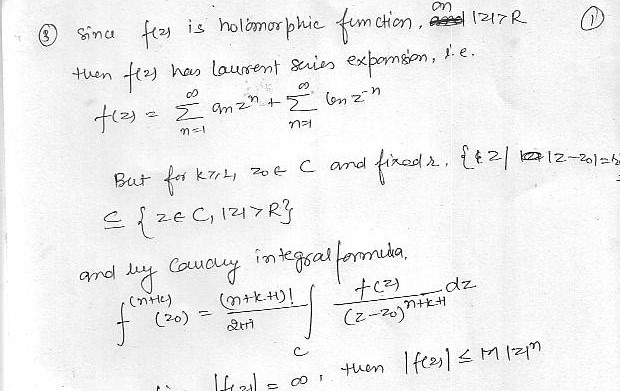 ③ Since f(z) is holomorphic function, on |z|>R ①
then f(z) has laurent series expansion, i.e.
f(z) = ∞∑n=1 an z^n + ∞∑n=1 bn z^-n
But for k≥1, z0 ∈ C and fixed r, {z| |z-z0|=
⊆ {z∈C, |z|>R}
and by Cauchy integral formula,
f^(n+k) (z0) = (n+k+1)!/2πi ∫C f(z)/(z-z0)^n+k+1 dz
|f(z)| = ∞, then |f(z)| ≤ M|z|^n